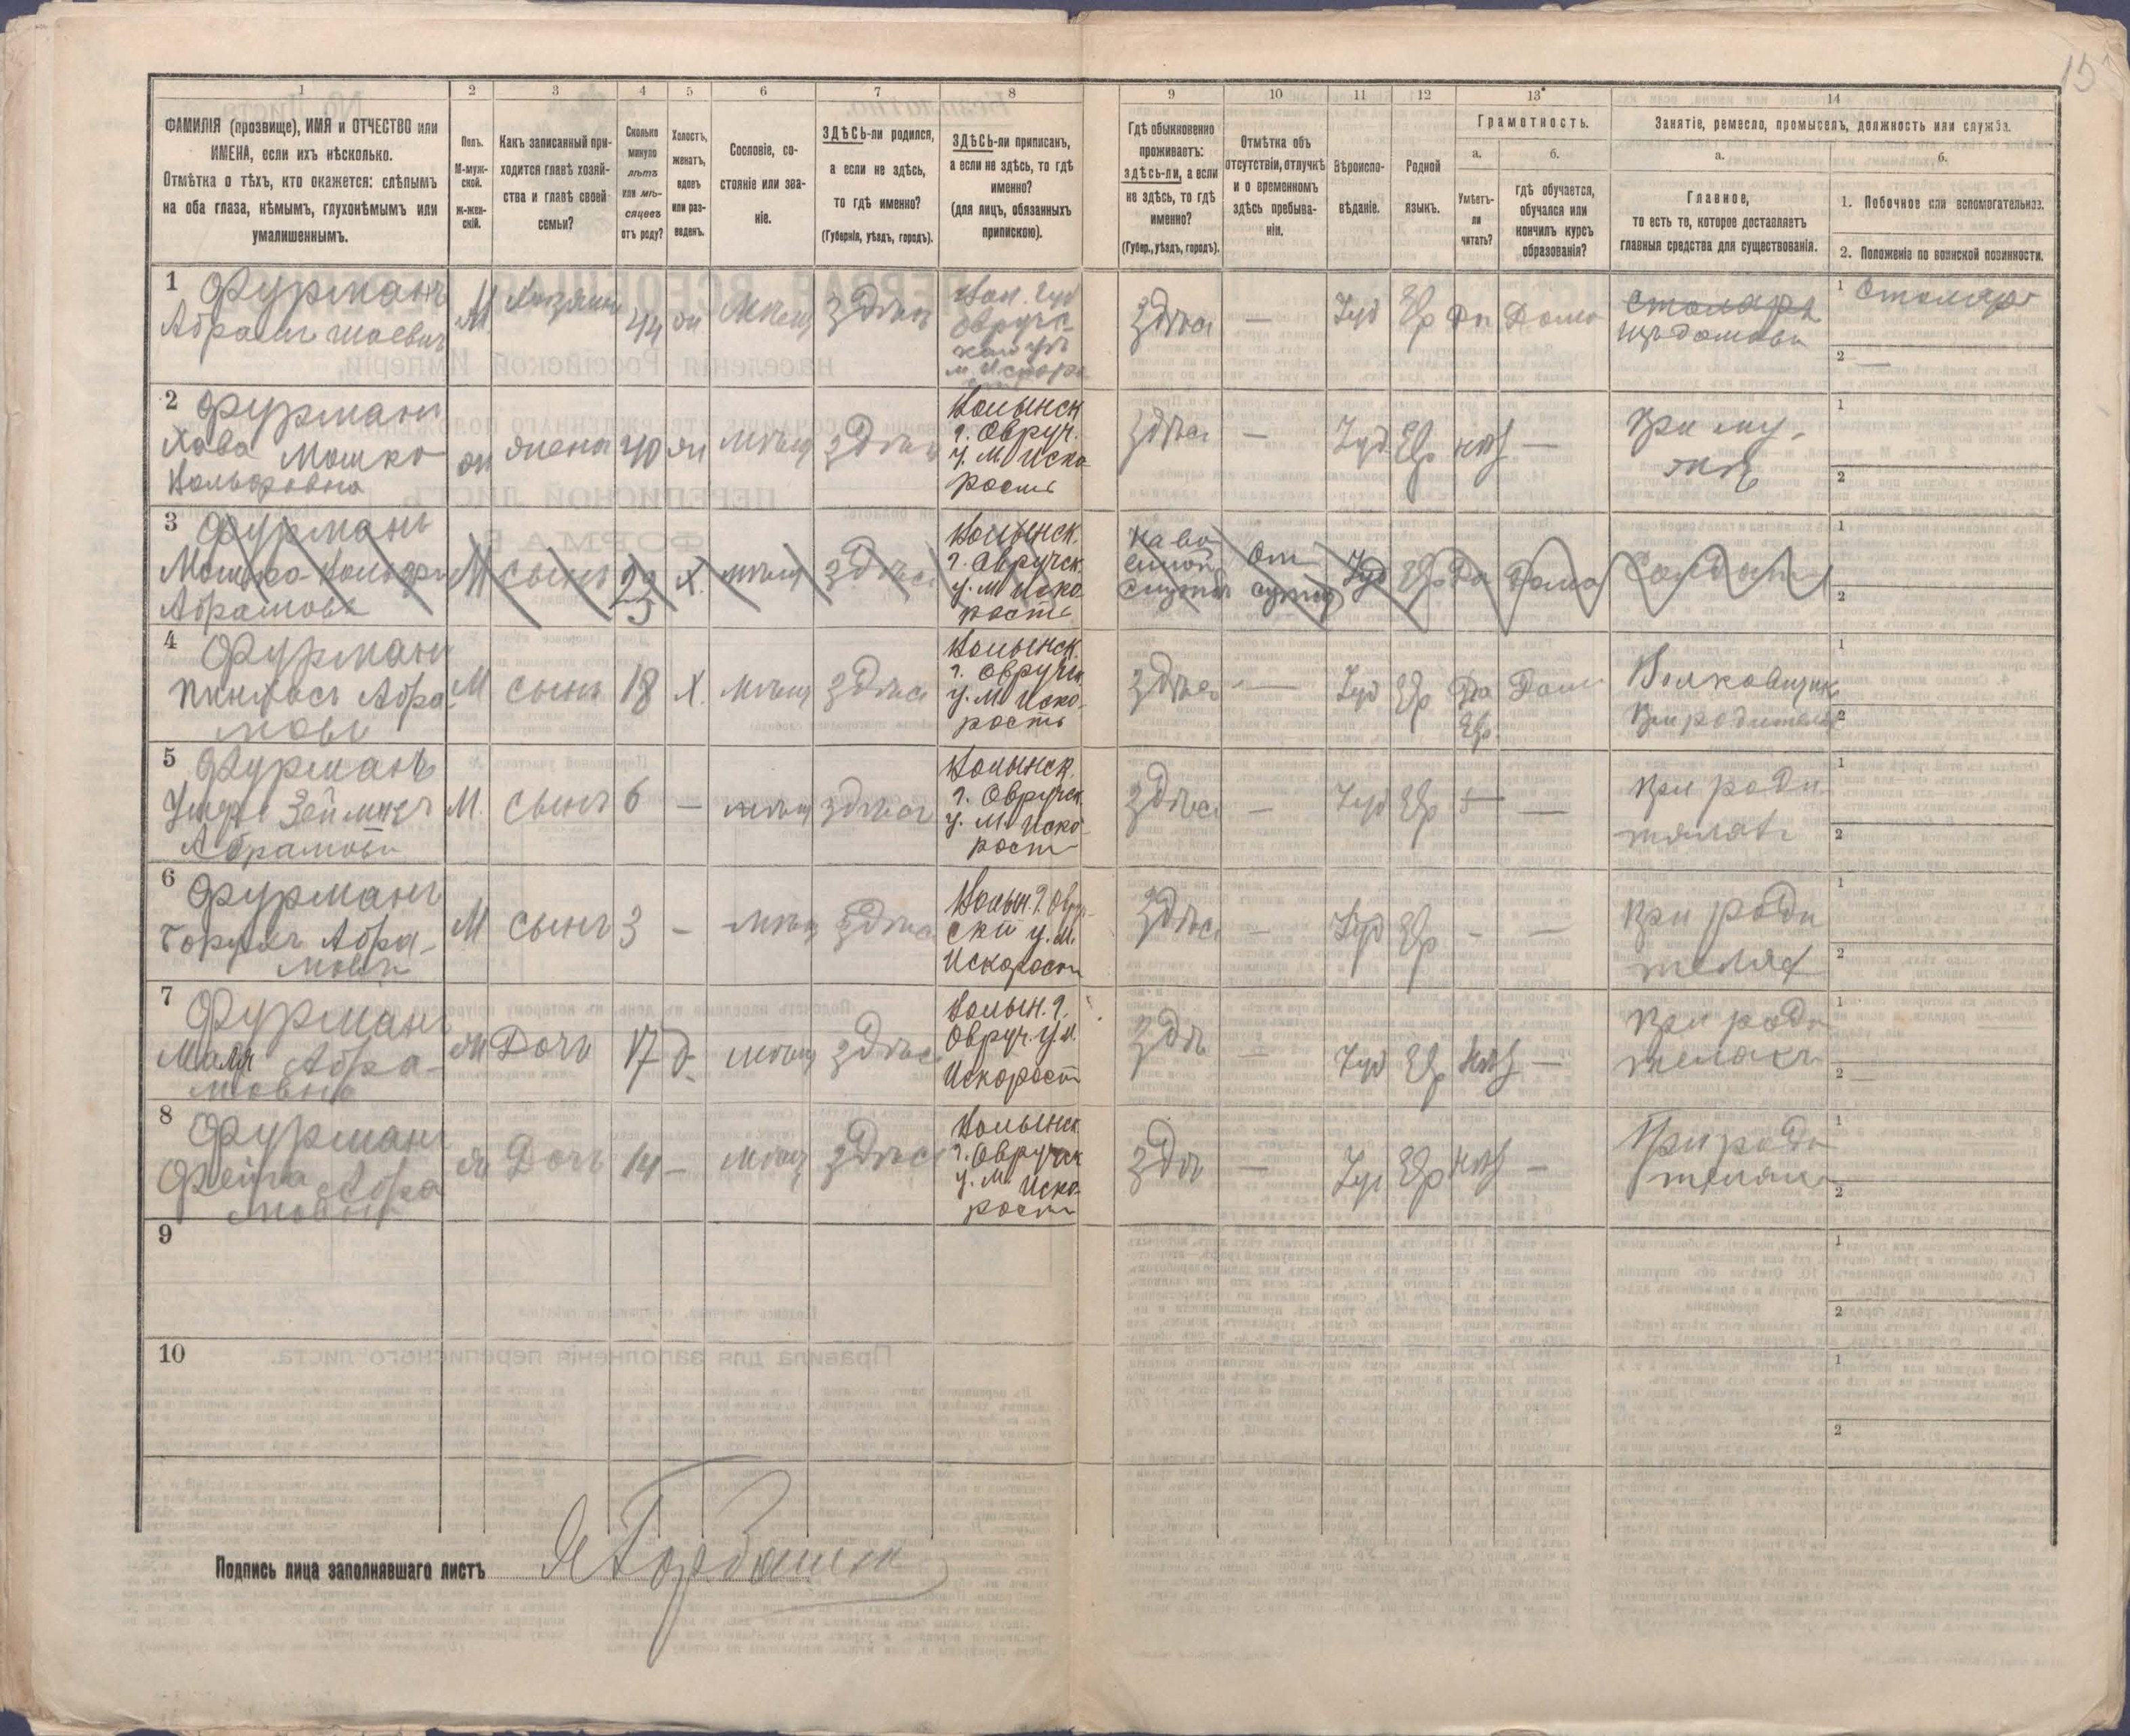 15
1
2
3
4
5
6
7
8
9
10
11
12
13
14
ФАМИЛІЯ (прозвище), ИМЯ и ОТЧЕСТВО или
ИМЕНА, если ихъ нѣсколько.
Отмѣтка о тѣхъ, кто окажется: слѣпымъ
на оба глаза, нѣмымъ, глухонѣмымъ или
умалишеннымъ.
Полъ.
М-муж-
ской.
Ж-жен-
скій.
Какъ записанный при-
ходится главѣ хозяй-
ства и главѣ своей
семьи?
Сколько
минуло
лѣтъ
или мѣ-
сяцевъ
отъ роду?
Холостъ,
женатъ,
вдовъ
или раз-
веденъ.
Сословіе, со-
стояніе или зва-
ніе.
ЗДѢСЬ-ли родился,
а если не здѣсь,
то гдѣ именно?
(Губернія, уѣздъ, городъ).
ЗДѢСЬ-ли приписанъ,
а если не здѣсь, то гдѣ
именно?
(для лицъ, обязанныхъ
припискою).
Гдѣ обыкновенно
проживаетъ:
здѣсь-ли, а если
не здѣсь, то гдѣ
именно?
(Губер., уѣздъ, городъ).
Отмѣтка объ
отсутствіи, отлучкѣ
и о временномъ
здѣсь пребыва-
ніи.
Вѣроиспо-
вѣданіе.
Родной
языкъ.
Грамотность.
а.
Умѣетъ-
ли
читать?
б.
гдѣ обучается,
обучался или
кончилъ курсъ
образованія?
Занятіе, ремесло, промыселъ, должность или служба.
а.
Главное,
то есть то, которое доставляетъ
главныя средства для существованія.
б.
1. Побочное или вспомогательное.
2. Положеніе по воинской повинности.
1 Фурманъ
Абрамъ
М
44
Здѣсь
Овручс-
Здѣсь
—
Іуд
Евр
Да
Дома
Столяръ
1 Столяр
2 —
2 Фурманъ
Хава Мошко
Вольфовна
ж
жена
40
ж
мѣщ
здѣсь
Волынск
г. Овруч.
у. М. Иско
рость
здѣсь
—
Іуд
Евр
нѣт
—
При му-
жѣ
1
2
3 Фурманъ
Мошко-Вольфъ
Абрамовъ
М
сынъ
Х.
мѣщ
здѣсь
Волынск.
г. Овручск
у. М. Иско
рость
Іуд
Евр
Да
Дома
Солдатъ
1
2
4 Фурманъ
Пинхасъ Абра-
мовъ
М
сынъ
18
Х.
мѣщ
здѣсь
Волынск.
г. Овручск.
у. М. Иско-
рость
здѣсь
—
Іуд
Евр
Да
Евр.
Дома
1
2
5 Фурманъ
Абрамовъ
М.
сынъ
6
—
мѣщ
здѣсь
Волынск.
г. Овручск.
у. М. Иско-
рост
здѣсь
—
Іуд
Евр
—
—
При роди
теляхъ
1
2
6 Фурманъ
Борухъ Абра-
мовъ
М
сынъ
3
—
мѣщ
здѣсь
Волын. г. Овру-
скій у. М.
Искорост
здѣсь
—
Іуд
Евр
—
—
при роди
телях
1
2
7 Фурманъ
Маля Абра-
мовна
ж
Дочь
17
д.
мѣщ
здѣсь
Волын. г.
Овруч. у. М.
Искорост
здѣ
—
Іуд
Евр
нѣт
—
При роди
телахъ
1
2 —
8 Фурманъ
Фейга Абра
мовна
ж
Дочь
14
—
мѣщ
здѣсь
Волынск
г. Овручск
у. М. Иско-
рости
здѣ
—
Іуд
Евр
нѣт
—
При роди
телях
1
2
9
1
2
10
1
2
Подпись лица заполнявшаго листъ